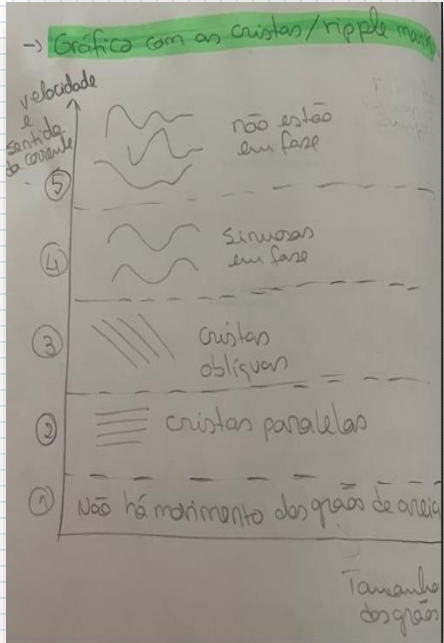 → Gráfico com as cristas/ripple marks
velocidade
e
sentido
da corrente
⑤
não estão
em fase
④
sinuosas
em fase
③
cristas
oblíquas
②
cristas paralelas
①
Não há movimento dos grãos de areia
Tamanho
dos grãos